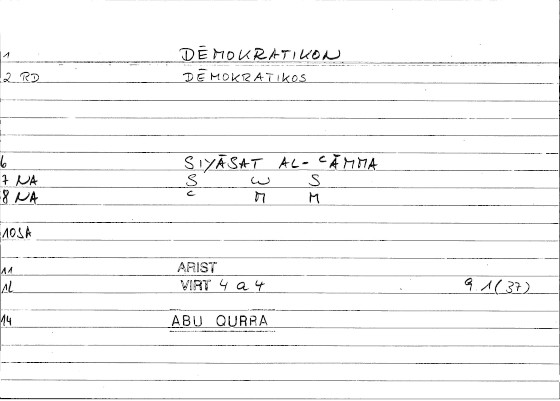 1 DĒMOKRATIKON
2 RD DĒMOKRATIKOS
6 SIYĀSAT AL-ʿĀMMA
7 NA S W S
8 NA ʿ M M
10SA
11 ARIST
12 VIRT 4 a 4 9 1(37)
14 ABU QURRA